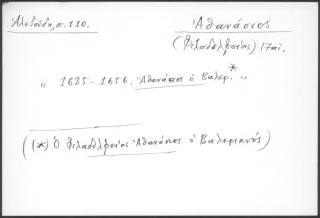 Ἀλεξούδη, σ. 110.
Ἀθανάσιος
(Φιλαδελφείας) 17 αἰ.
" 1635 - 1656. Ἀθανάσιος ὁ Βαλερ.* "
((*) Ὁ Φιλαδελφείας Ἀθανάσιος ὁ Βαλεριανός)